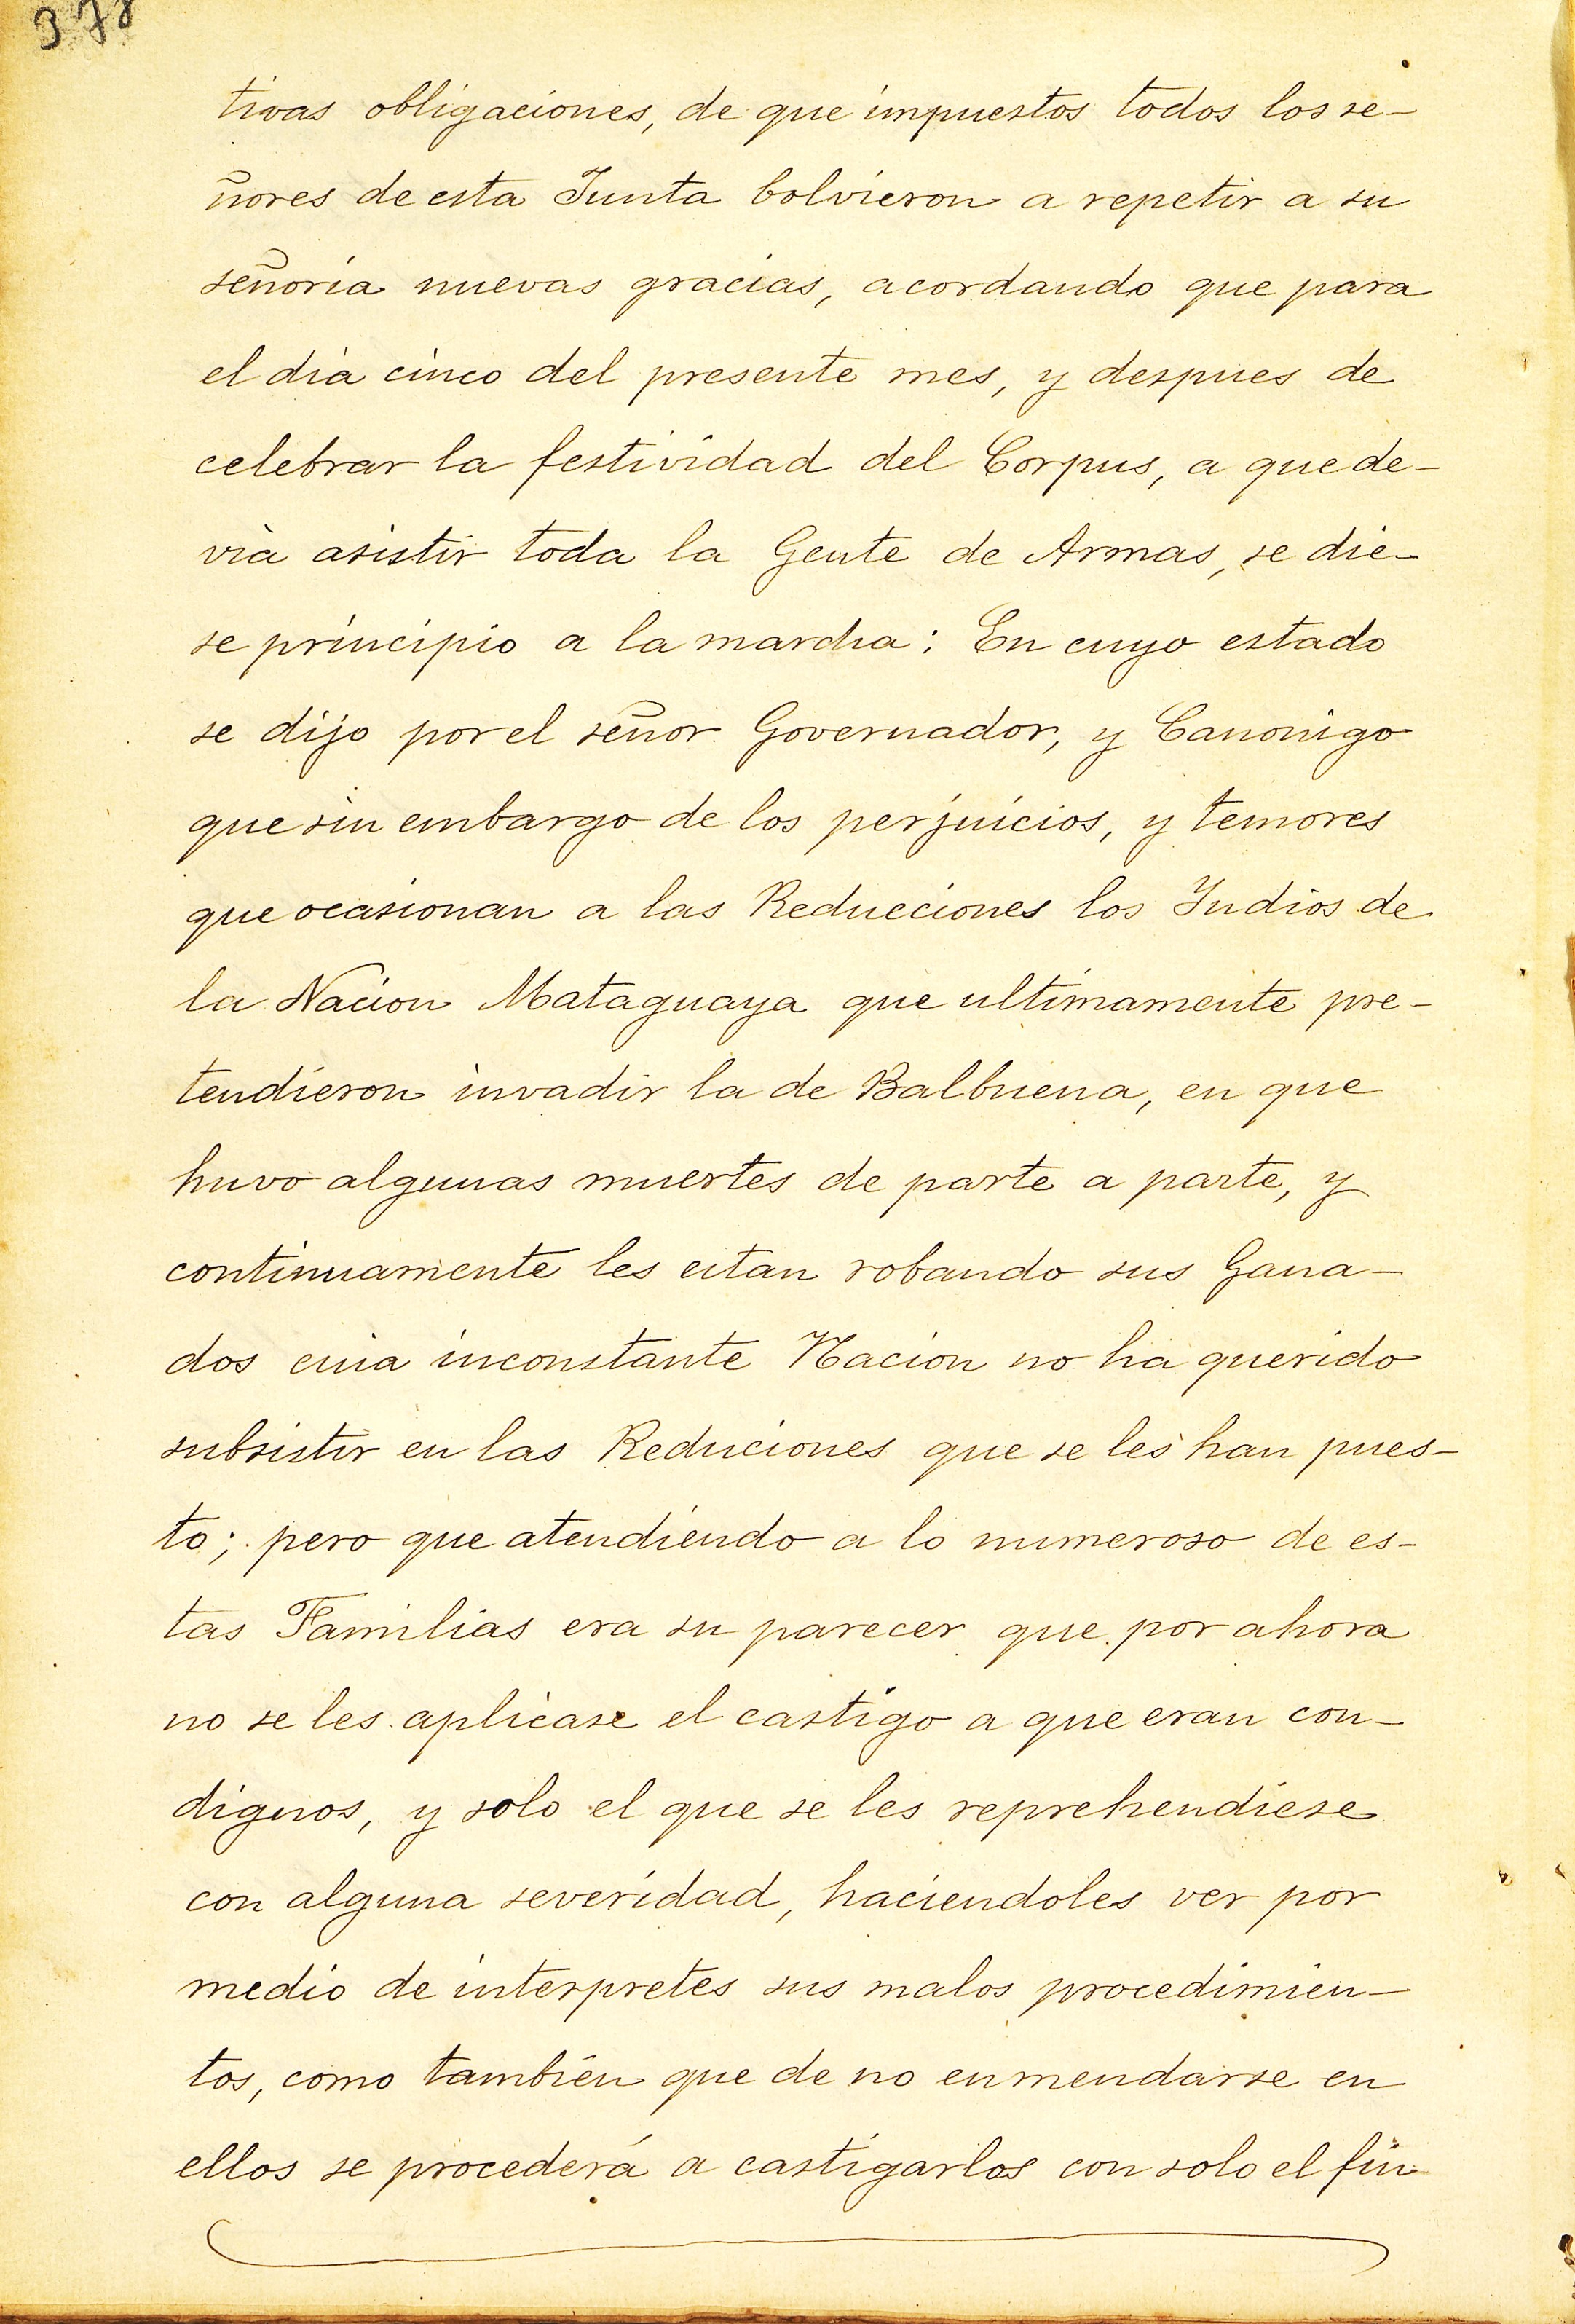 378
tivas obligaciones, de que impuestos todos los se-
ñores de esta Junta bolvieron a repetir a su
señoria nuevas gracias, acordando que para
el dia cinco del presente mes, y despues de
celebrar la festividad del Corpus, a que de-
via asistir toda la Gente de Armas, se die-
se principio a la marcha: En cuyo estado
se dijo por el señor Governador, y Canonigo
que sin embargo de los perjuicios, y temores
que ocasionan a las Reducciones los Yndios de
la Nacion Mataguaya que ultimamente pre-
tendieron invadir la de Balbuena, en que
huvo algunas muertes de parte a parte, y
continuamente les estan robando sus Gana-
dos cuia inconstante Nacion no ha querido
subsistir en las Reduciones que se les han pues-
to; pero que atendiendo a lo numeroso de es-
tas Familias era su parecer que por ahora
no se les aplicase el castigo a que eran con-
dignos, y solo el que se les reprehendiese
con alguna severidad, haciendoles ver por
medio de interpretes sus malos procedimien-
tos, como tambien que de no enmendarse en
ellos se procederá a castigarlos con solo el fin